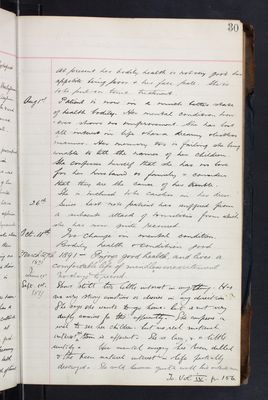 30
At present her bodily health is not very good her
appetite being poor & her face pale. She is
to be put on tonic treatment.
Aug 1st Patient is now in a much better state
of health bodily. Her mental condition however
shows no improvement. She has lost
all interest in life & has a dreamy
manner. Her memory too is failing she being
unable to tell the names of her children.
She confesses herself that she has no love
for her husband or family & considers
that they are the cause of her trouble.
She is inclined to be careless in her dress
26th Since last note patient has suffered from
a subacute attack of from which
she has now quite recovered.
Oct. 18th No change in mental condition.
Bodily health & condition good
March 27th 1891 - Enjoys good health, and lives a
comfortable life of
June
Sept 1st 1891 Shows still too little interest in anything. Has
no very strong emotion or desires in any direction.
She says she wants to go home but is not very
anxious for the opportunity. She
wish to see her children but no real natural
interest in them is apparent. She is lazy & a little
untidy. Her mental energy has been dulled
& the keen natural interest in life partially
destroyed. She could
To Vol IX p. 156